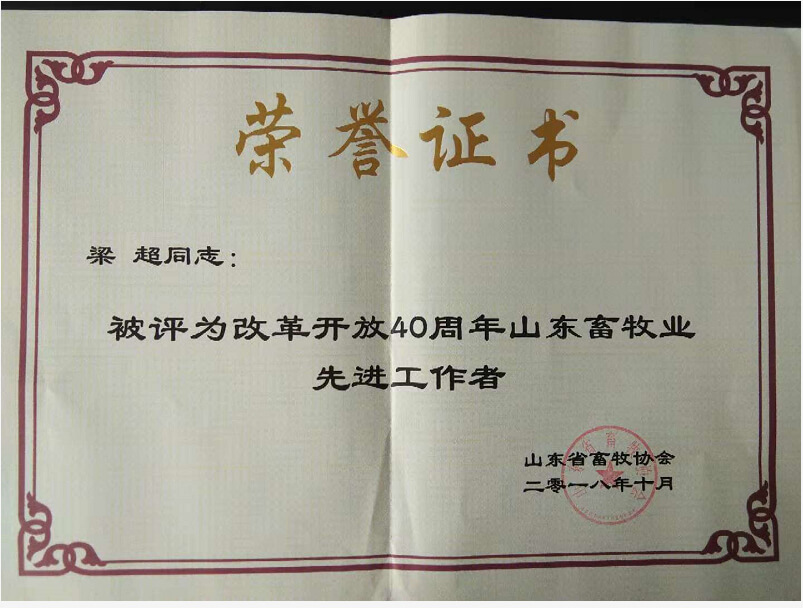 荣誉证书
梁 超同志：
被评为改革开放40周年山东畜牧业
先进工作者
山东省畜牧协会
二零一八年十月